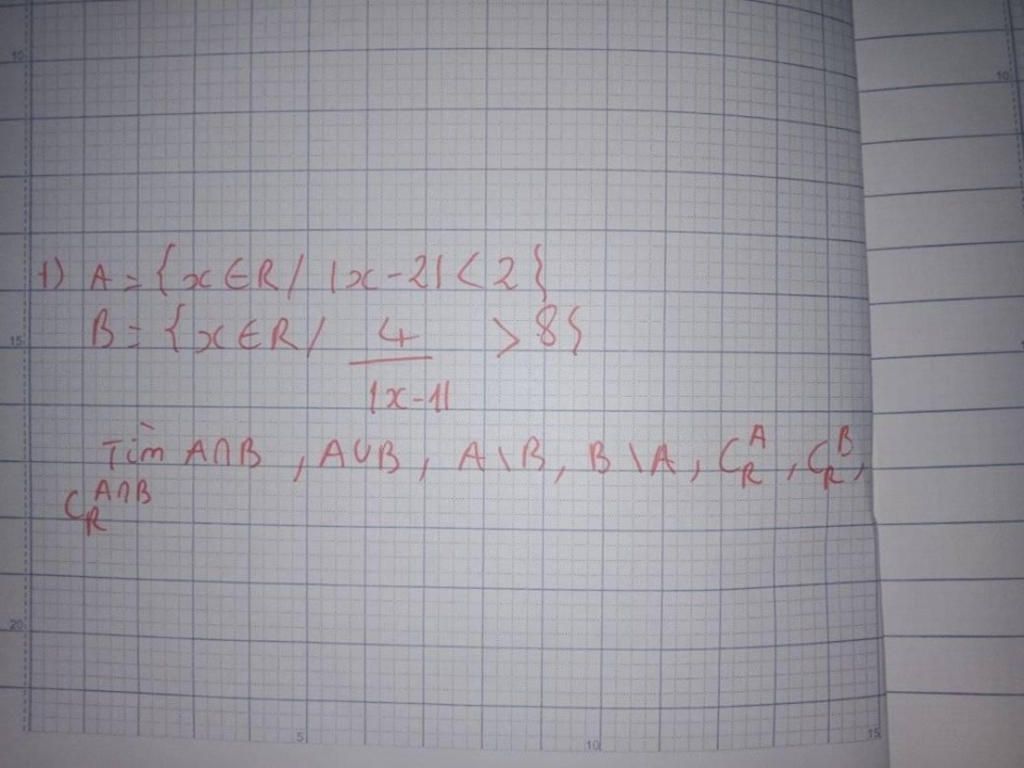 1) A = { x ∈ R / |x - 2| < 2 }
B = { x ∈ R / 4 / |x - 1| > 8 }
Tìm A∩B , A∪B , A \ B , B \ A , C_R^A , C_R^B ,
C_R^{A∩B}
15
10
15
20
5
10
15